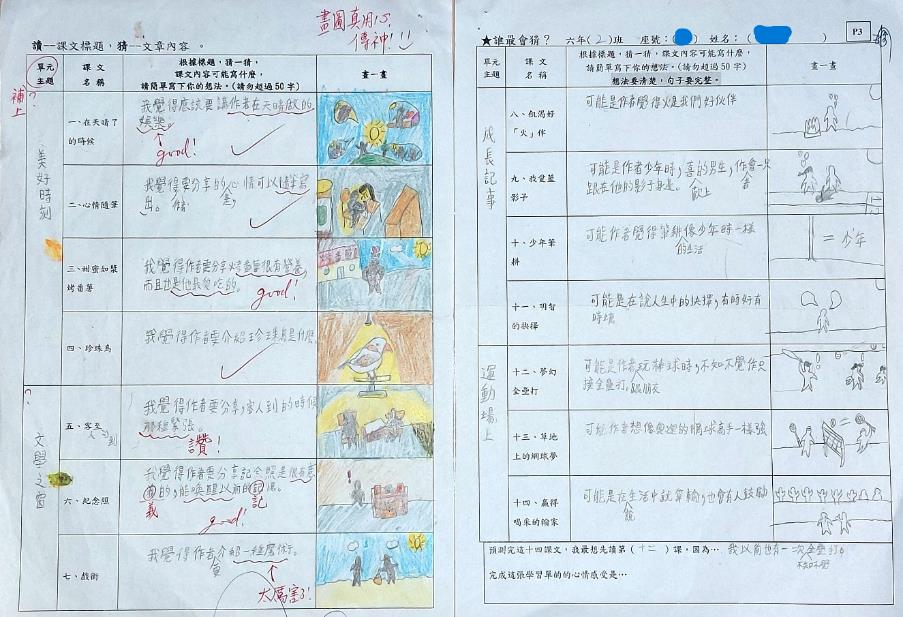 畫圖真用心,
傳神!!
讀--課文標題,猜--文章內容 。
單元
主題
課文
名稱
根據標題,猜一猜,
課文內容可能寫什麼,
請簡單寫下你的想法。(請勿超過 50 字)
畫一畫
?
補上
美好時刻
一、在天晴了
的時候
我覺得應該要讓作者在天晴做的
娛樂。
good!
二、心情隨筆
我覺得要分享的心情可以隨筆寫
出。
三、甜蜜如漿
烤番薯
我覺得作者要分享烤番薯很有營養,
而且也是他最愛吃的。
good!
四、珍珠鳥
我覺得作者要介紹珍珠鳥是什麼
?
文學之窗
五、客至
我覺得作者要分享,客人到的時候
那種緊張。
讚!
六、紀念照
我覺得作者要分享記念照是很有意
的,能喚醒以前的記憶。
義
記
good!
七、戲術
我覺得作者介紹一種魔術。
太厲害了!
★誰最會猜? 六年(2)班 座號:( ) 姓名:( )
P3
單元
主題
課文
名稱
根據標題,猜一猜,課文內容可能寫什麼,
請簡單寫下你的想法。(請勿超過 50 字)
想法要清楚,句子要完整。
畫一畫
成長記事
八、飢渴好
「火」伴
可能是作者覺得火是我們好伙伴
九、我愛藍
影子
可能是作者少年時,喜的男生,作會一只
跟在他的影子身邊。
十、少年筆
耕
可能作者覺得筆耕像少年時一樣
的生活
= 少年
十一、明智
的抉擇
可能是在說人生中的抉擇,有時好有
時壞
運動場上
十二、夢幻
全壘打
可能是作者玩棒球時,不知不覺作只
接全壘打,
跟朋友
十三、草地
上的網球夢
可能作者想像奧運的網球高手一樣強
十四、贏得
喝采的輸家
可能是在生活中就算輸,也會有人鼓勵
預測完這十四課文,我最想先讀第(十二)課,因為… 我以前也有一次全壘打。
完成這張學習單的的心情感受是…